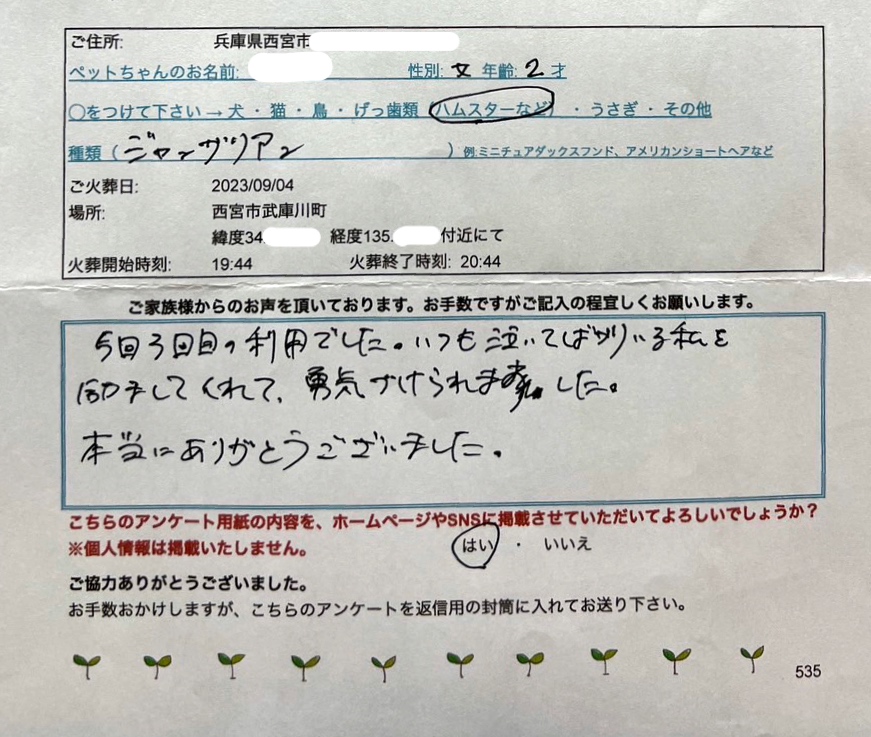 ご住所: 兵庫県西宮市
ペットちゃんのお名前: 性別: 女 年齢: 2 才
○をつけて下さい→犬・猫・鳥・げっ歯類(ハムスターなど)・うさぎ・その他
種類(ジャンガリアン)例:ミニチュアダックスフンド、アメリカンショートヘアなど
ご火葬日: 2023/09/04
場所: 西宮市武庫川町
緯度34. 経度135. 付近にて
火葬開始時刻: 19:44 火葬終了時刻: 20:44
ご家族様からのお声を頂いております。お手数ですがご記入の程宜しくお願いします。
今回3回目の利用でした。いつも泣いてばかりいる私を
励ましてくれて、勇気づけられました。
本当にありがとうございました。
こちらのアンケート用紙の内容を、ホームページやSNSに掲載させていただいてよろしいでしょうか?
※個人情報は掲載いたしません。 はい ・ いいえ
ご協力ありがとうございました。
お手数おかけしますが、こちらのアンケートを返信用の封筒に入れてお送り下さい。
535